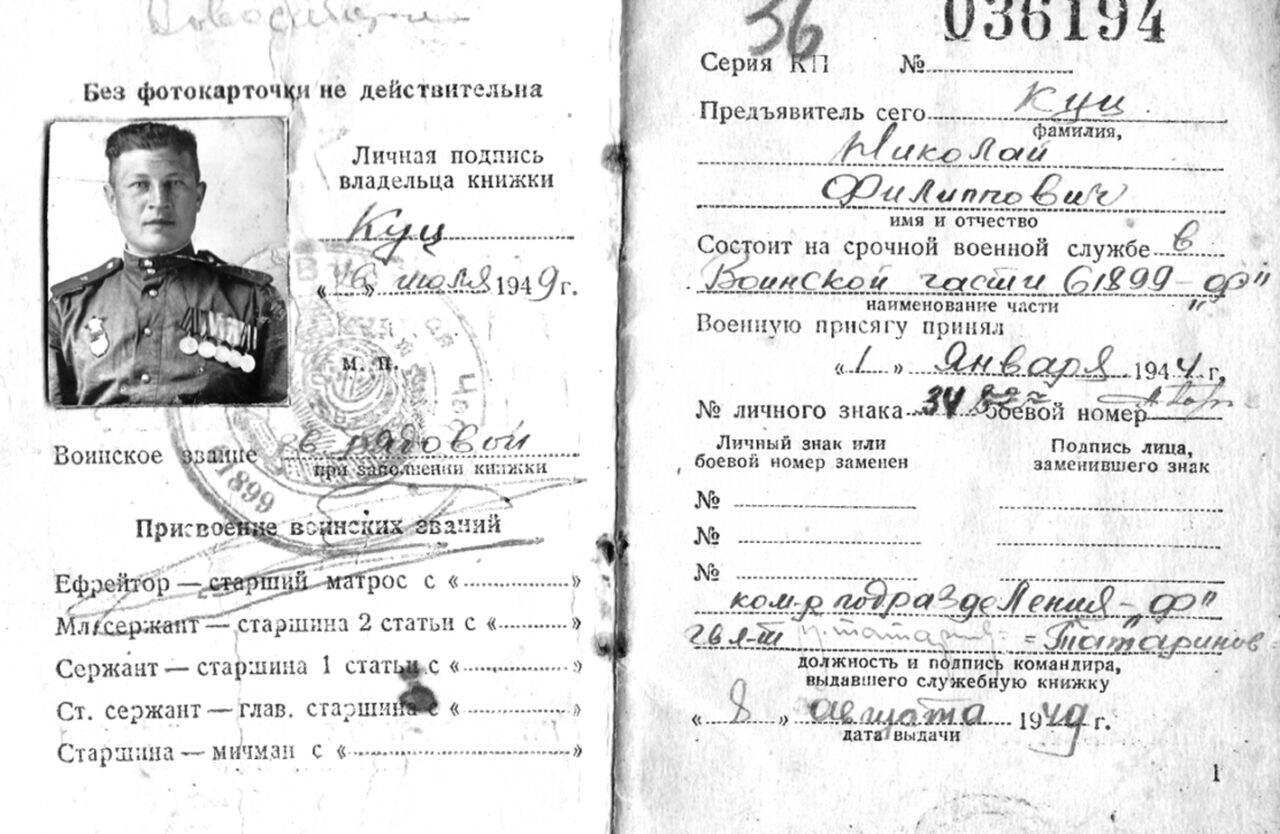 Без фотокарточки не действительна
Личная подпись
владельца книжки
Куц
«16» июля 1949 г.
М. П.
Воинское звание гв рядовой
при заполнении книжки
1899
Присвоение воинских званий
Ефрейтор — старший матрос с « »
Мл. сержант — старшина 2 статьи с « »
Сержант — старшина 1 статьи с « »
Ст. сержант — глав. старшина с « »
Старшина — мичман с « »
36 036194
Серия КП №
Предъявитель сего Куц
фамилия,
Николай
Филиппович
имя и отчество
Состоит на срочной военной службе в
Воинской части 61899-„Ф"
наименование части
Военную присягу принял
«1» Января 1944 г.
№ личного знака боевой номер
Личный знак или
боевой номер заменен
Подпись лица,
заменившего знак
№
№
№
ком-р подразделения-„Ф"
гв л-т =Татаринов
должность и подпись командира,
выдавшего служебную книжку
«8» августа 1949 г.
дата выдачи
1